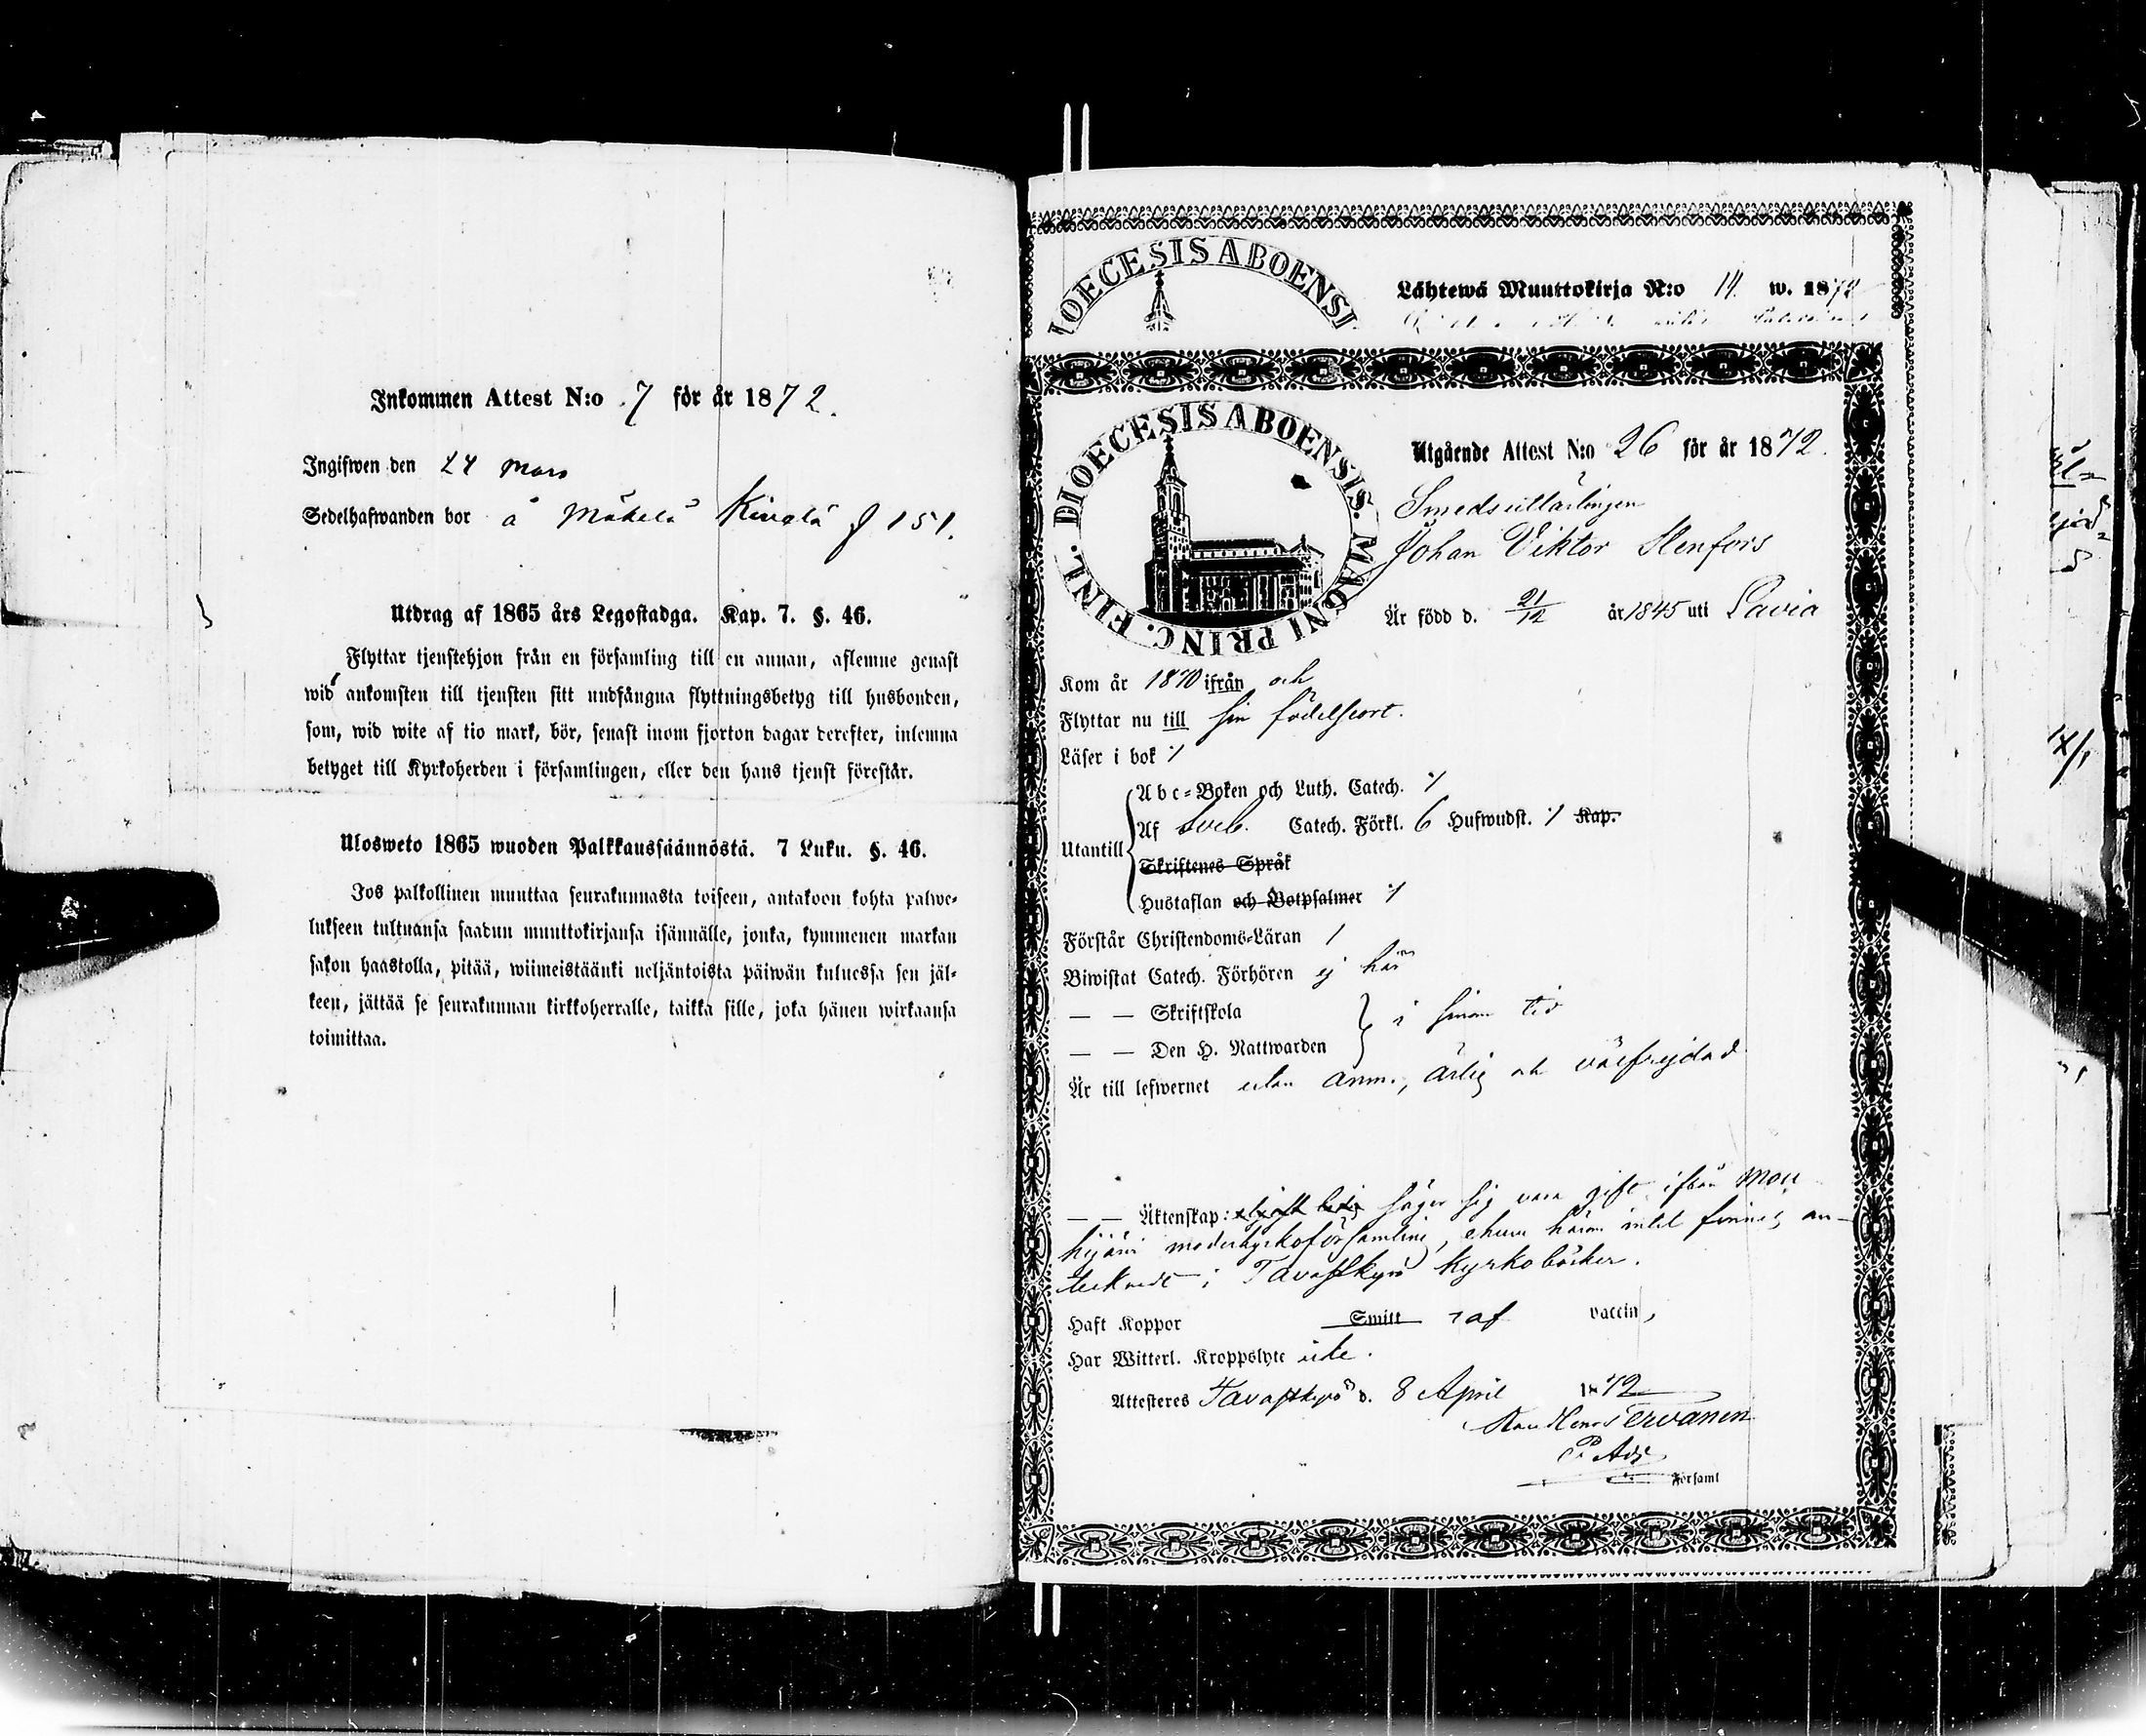 Inkommen Attest N:o 7 för år 1872.
Ingifwen den 24 Mars
Sedelhafwanden bor å Mäkelä Kivelä f 151.
Utdrag af 1865 års Legostadga. Kap. 7. §. 46.
Flyttar tjenstehjon från en församling till en annan, aflemne genast
wid ankomsten till tjensten sitt undfångna flyttningsbetyg till husbonden,
som, wid wite af tio mark, bör, senast inom fjorton dagar derefter, inlemna
betyget till Kyrkoherden i församlingen, eller den hans tjenst förestår.
Ulosweto 1865 wuoden Palkkaussäännöstä. 7 Luku. §. 46.
Jos palkollinen muuttaa seurakunnasta toiseen, antakoon kohta palwe-
lukseen tultuansa saadun muuttokirjansa isännälle, jonka, kymmenen markan
sakon haastolla, pitää, wiimeistäänki neljäntoista päiwän kuluessa sen jäl-
keen, jättää se seurakunnan kirkkoherralle, taikka sille, joka hänen wirkaansa
toimittaa.
IOECESIS ABOENSI
Lähtewä Muuttokirja N:o 14 w. 1872
DIOECESIS ABOENSIS. MAGNI PRINC. FINL.
Utgående Attest N:o 26 för år 1872.
Smedsutlärlingen
Johan Viktor Stenfors
Är född d. 21/12 år 1845 uti Lavia
Kom år 1870 ifrån och
Flyttar nu till sin födelseort.
Läser i bok
Abc-Boken och Luth. Catech.
Utantill
Af Sveb. Catech. Förkl. 6 Hufwudst. Kap.
Skriftenes Språk
Hustaflan och Botpsalmer
Förstår Christendoms-Läran
Biwistat Catech. Förhören ej här
— — Skriftskola
i sinom tid
— — Den H. Nattwarden
Är till lefwernet utan anm., ärlig och välfrejdad
— — Äktenskap: säger sig vara gift ifrån Mou
hijärvi moderkyrkoförsamling, ehuru härom intet finnes an-
tecknadt i Tavastkyrö kyrkoböcker.
Haft Koppor Smitt af vaccin,
Har Witterl. Kroppslyte icke.
Attesteres Tavastkyrö d. 8 April 1872
Tervanen
P. Adj.
Församl